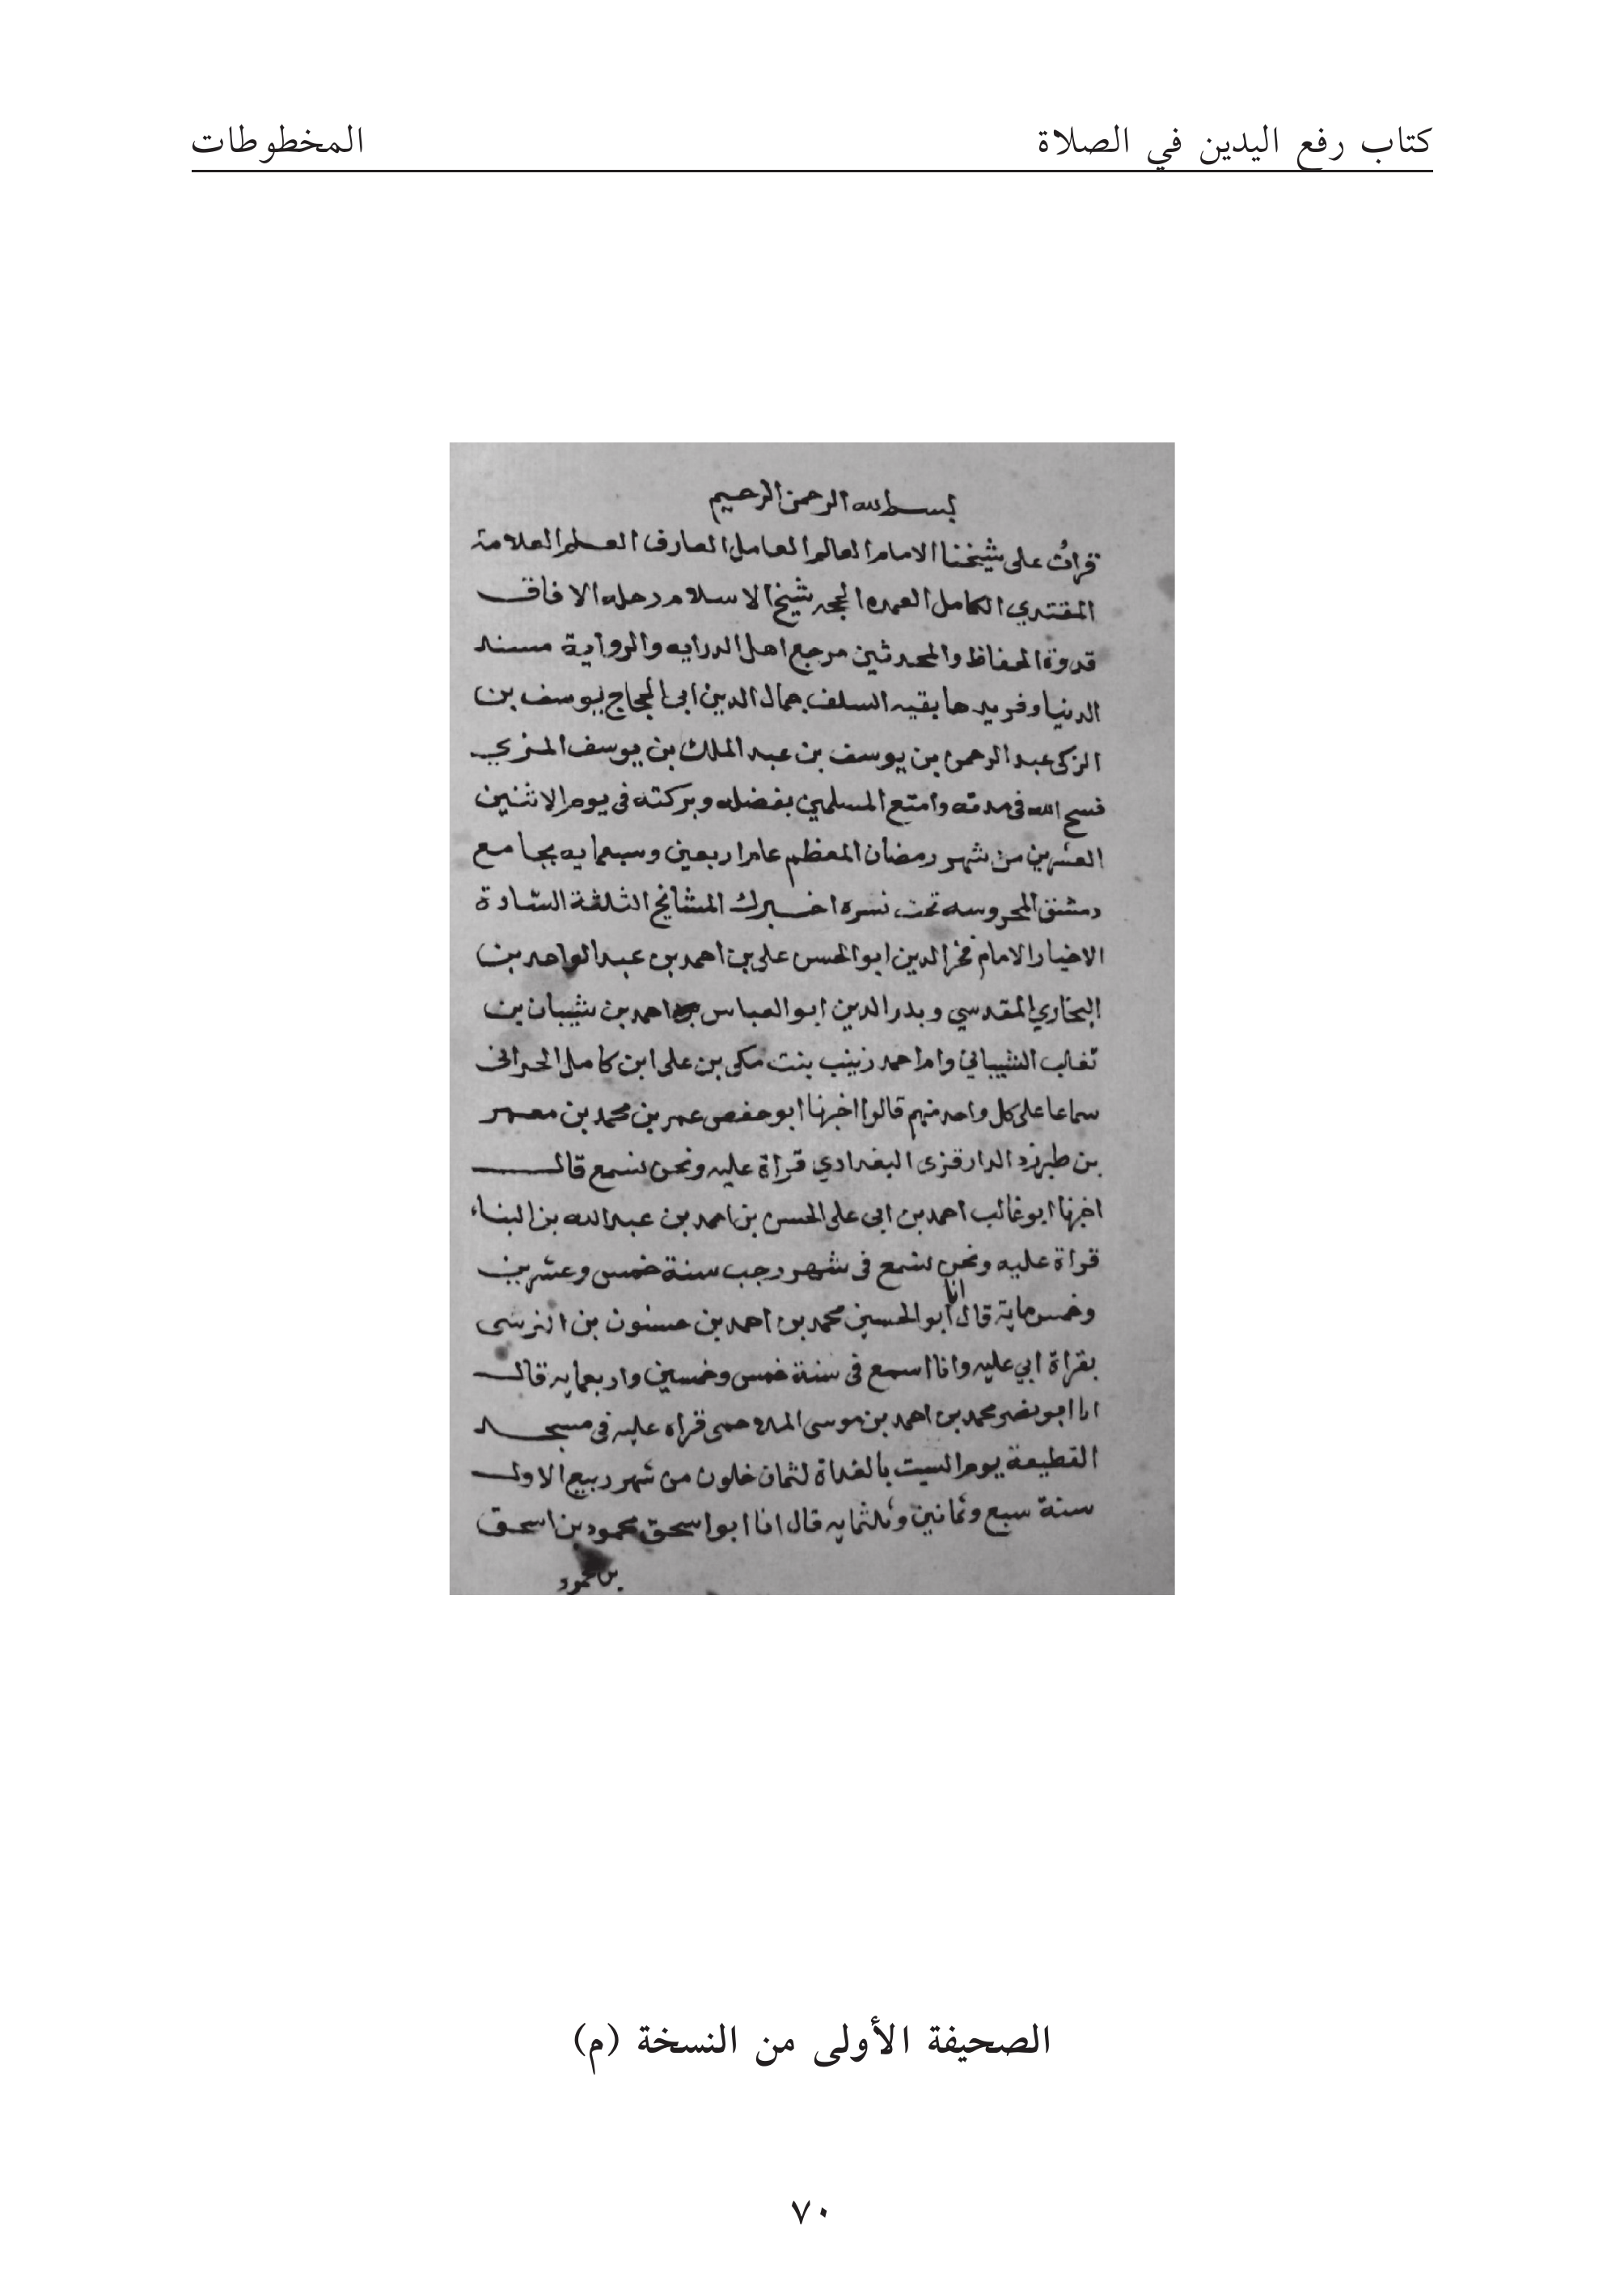 كتاب رفع اليدين في الصلاة
المخطوطات
بسم الله الرحمن الرحيم
قرأتُ على شيخنا الامام العالم العامل العارف العلم العلامة
المقتدي الكامل العمده الحجه شيخ الاسلام رحله الافاق
قدوة الحفاظ والمحدثين مرجع اهل الدرايه والرواية مسند
الدنيا وفريدها بقيه السلف جمال الدين ابى الحجاج يوسف بن
الزكى عبد الرحمن بن يوسف بن عبد الملك بن يوسف المزي
فسح الله فى مدته وامتع المسلمين بفضله وبركته فى يوم الاثنين
العشرين من شهر رمضان المعظم عام اربعين وسبعمايه بجامع
دمشق المحروسه تحت نسره اخبرك المشائخ الثلثة السّادة
الاخيار الامام فخر الدين ابو الحسن على بن احمد بن عبد الواحد بن
البخاري المقدسي وبدر الدين ابو العباس احمد بن شيبان بن
تغلب الشيباني وام احمد زينب بنت مكى بن على ابن كامل الحرانى
سماعا على كل واحد منهم قالوا اخبرنا ابو حفص عمر بن محمد بن معمر
بن طبرزد الدارقزى البغدادي قراة عليه ونحن نسمع قال
اخبرنا ابو غالب احمد بن ابى على الحسن بن احمد بن عبد الله بن البناء
قراة عليه ونحن نسمع فى شهر رجب سنة خمس وعشرين
وخمس ماية قال انا ابو الحسين محمد بن احمد بن حسنون بن النرسى
بقراة ابي عليه وانا اسمع فى سنة خمس وخمسين واربعمايه قال
انا ابو نصر محمد بن احمد بن موسى الملاحمى قراه عليه فى مسجد
القطيعة يوم السبت بالغداة لثمان خلون من شهر ربيع الاول
سنة سبع وثمانين وثلثمايه قال انا ابو اسحق محمود بن اسحق
بن محمود
الصحيفة الأولى من النسخة (م)
٧٠